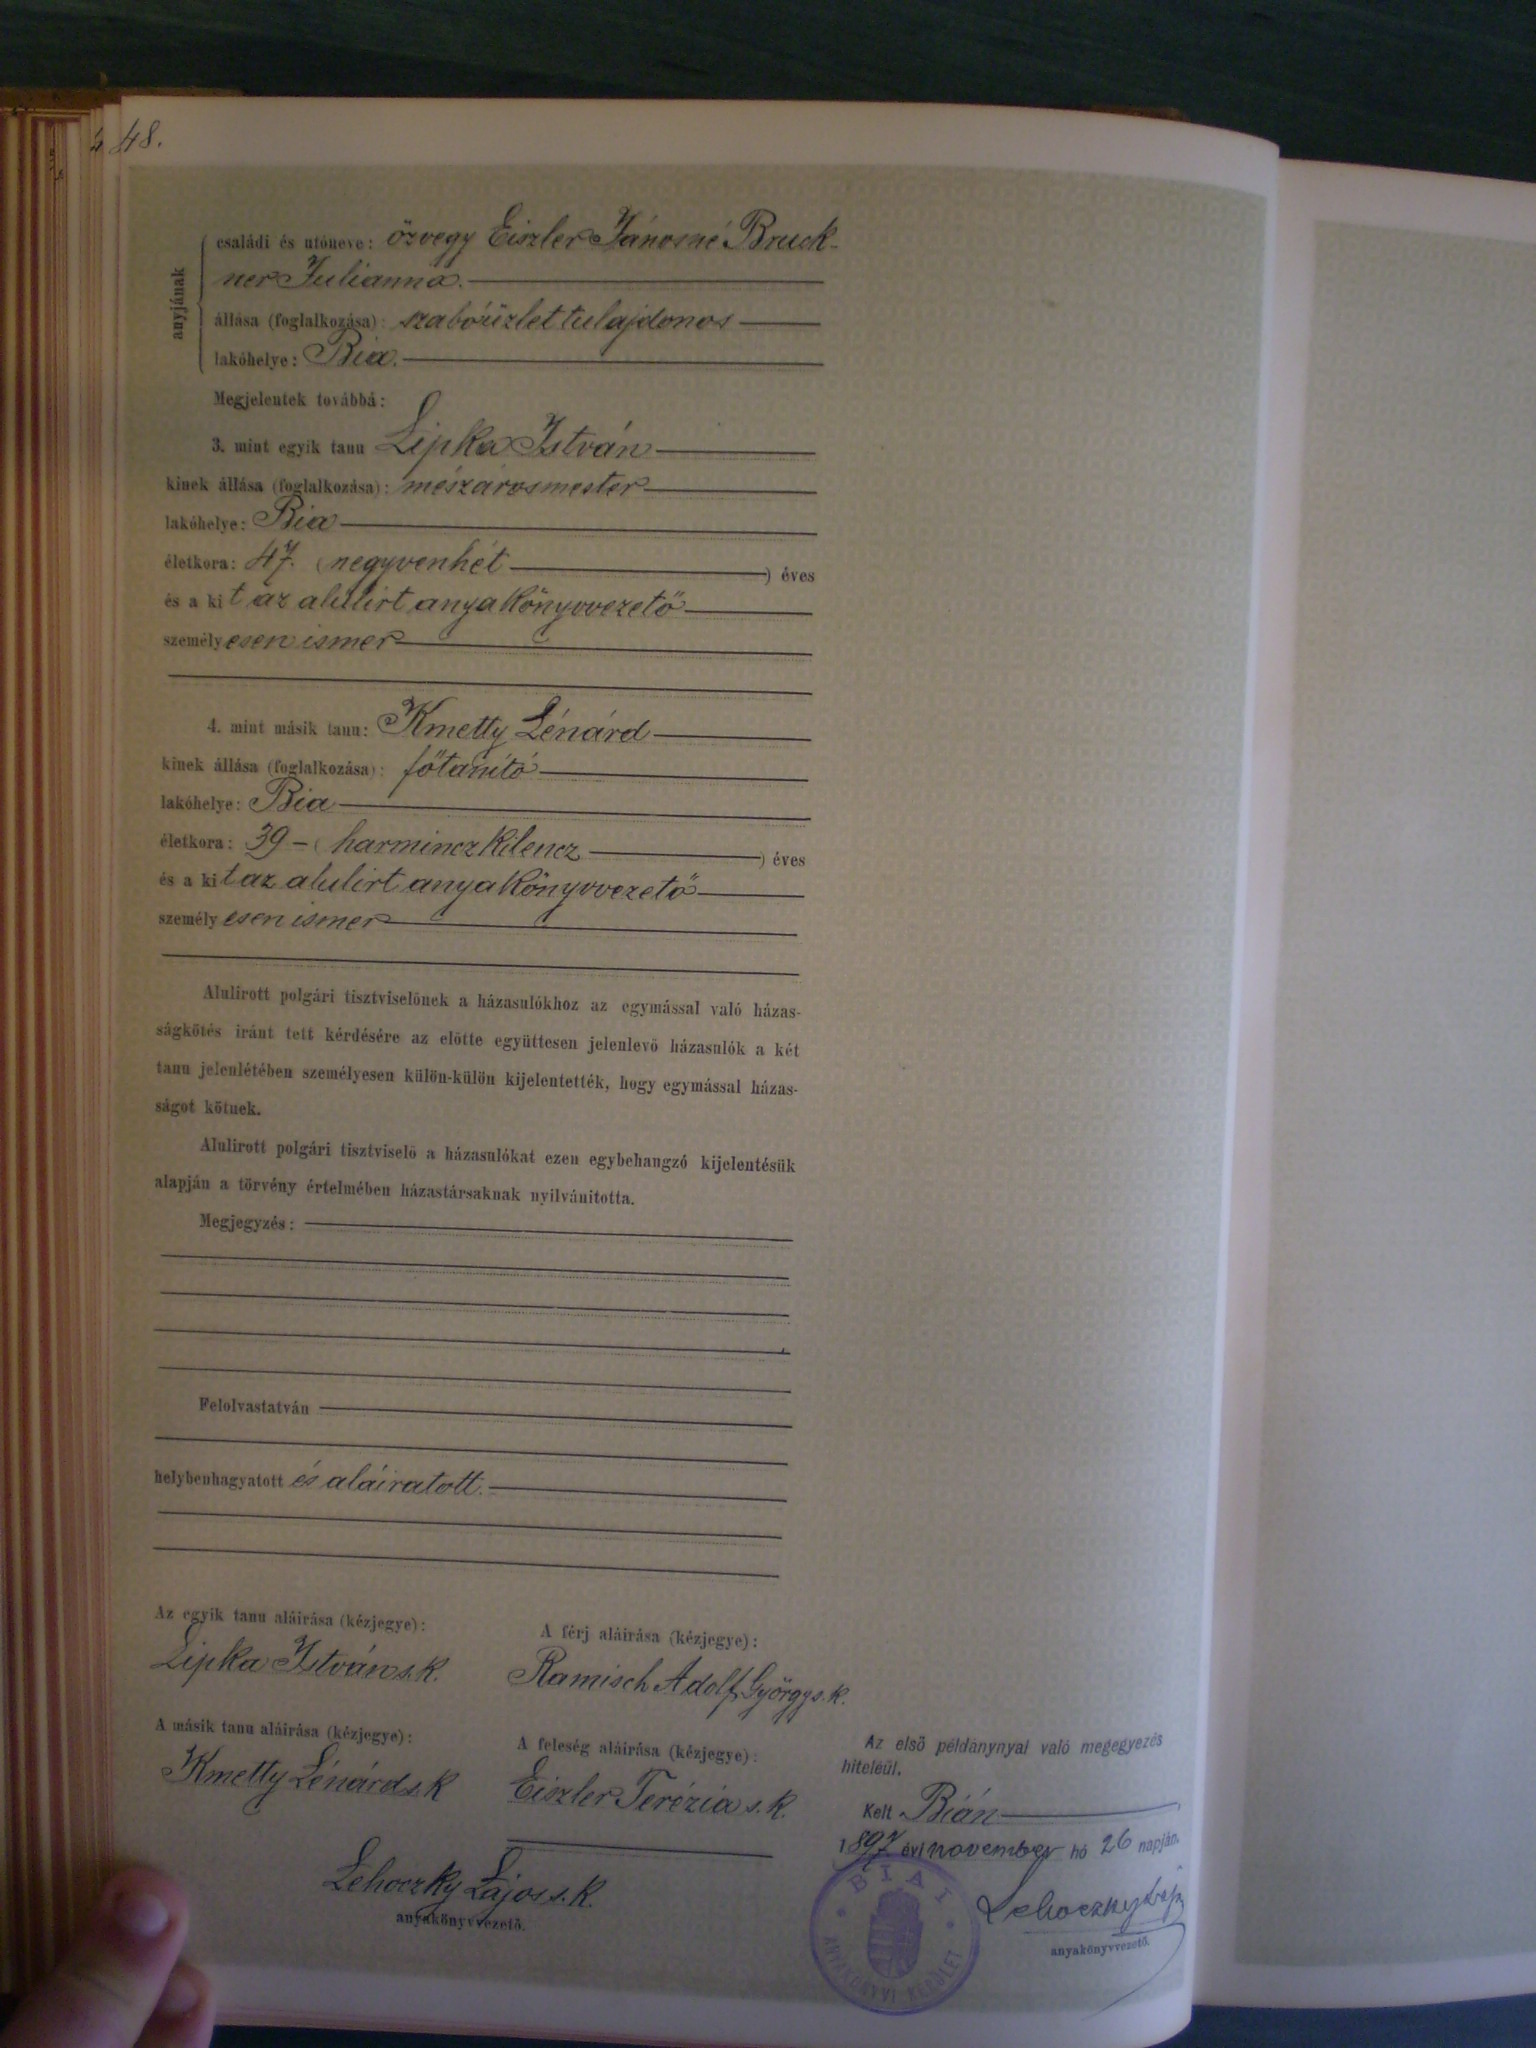 48.
anyjának
családi és utóneve: özvegy Eiszler Jánosné Bruck-
ner Julianna.
állása (foglalkozása): szabóüzlet tulajdonos
lakóhelye: Bia.
Megjelentek továbbá:
3. mint egyik tanu Lipka István
kinek állása (foglalkozása): mészárosmester
lakóhelye: Bia
életkora: 47. (negyvenhét) éves
és a kit az alulirt anyakönyvvezető
személyesen ismer
4. mint másik tanu: Kmetty Lénárd
kinek állása (foglalkozása): főtanító
lakóhelye: Bia
életkora: 39 – (harminczkilencz) éves
és a kit az alulirt anyakönyvvezető
személyesen ismer
Alulirott polgári tisztviselőnek a házasulókhoz az egymással való házas-
ságkötés iránt tett kérdésére az előtte együttesen jelenlevő házasulók a két
tanu jelenlétében személyesen külön-külön kijelentették, hogy egymással házas-
ságot kötnek.
Alulirott polgári tisztviselő a házasulókat ezen egybehangzó kijelentésük
alapján a törvény értelmében házastársaknak nyilvánitotta.
Megjegyzés:
Felolvastatván
helybenhagyatott és aláiratott.
Az egyik tanu aláirása (kézjegye):
Lipka István s. k.
A férj aláirása (kézjegye):
Ramisch Adolf György s. k.
A másik tanu aláirása (kézjegye):
Kmetty Lénárd s. k
A feleség aláirása (kézjegye):
Eiszler Terézia s. k.
Lehoczky Lajos s. k.
anyakönyvvezető.
Az első példánynyal való megegyezés
hiteléül.
Kelt Bián
1897 évi november hó 26 napján.
BIAI
ANYAKÖNYVI KERÜLET
Lehoczky Lajos
anyakönyvvezető.